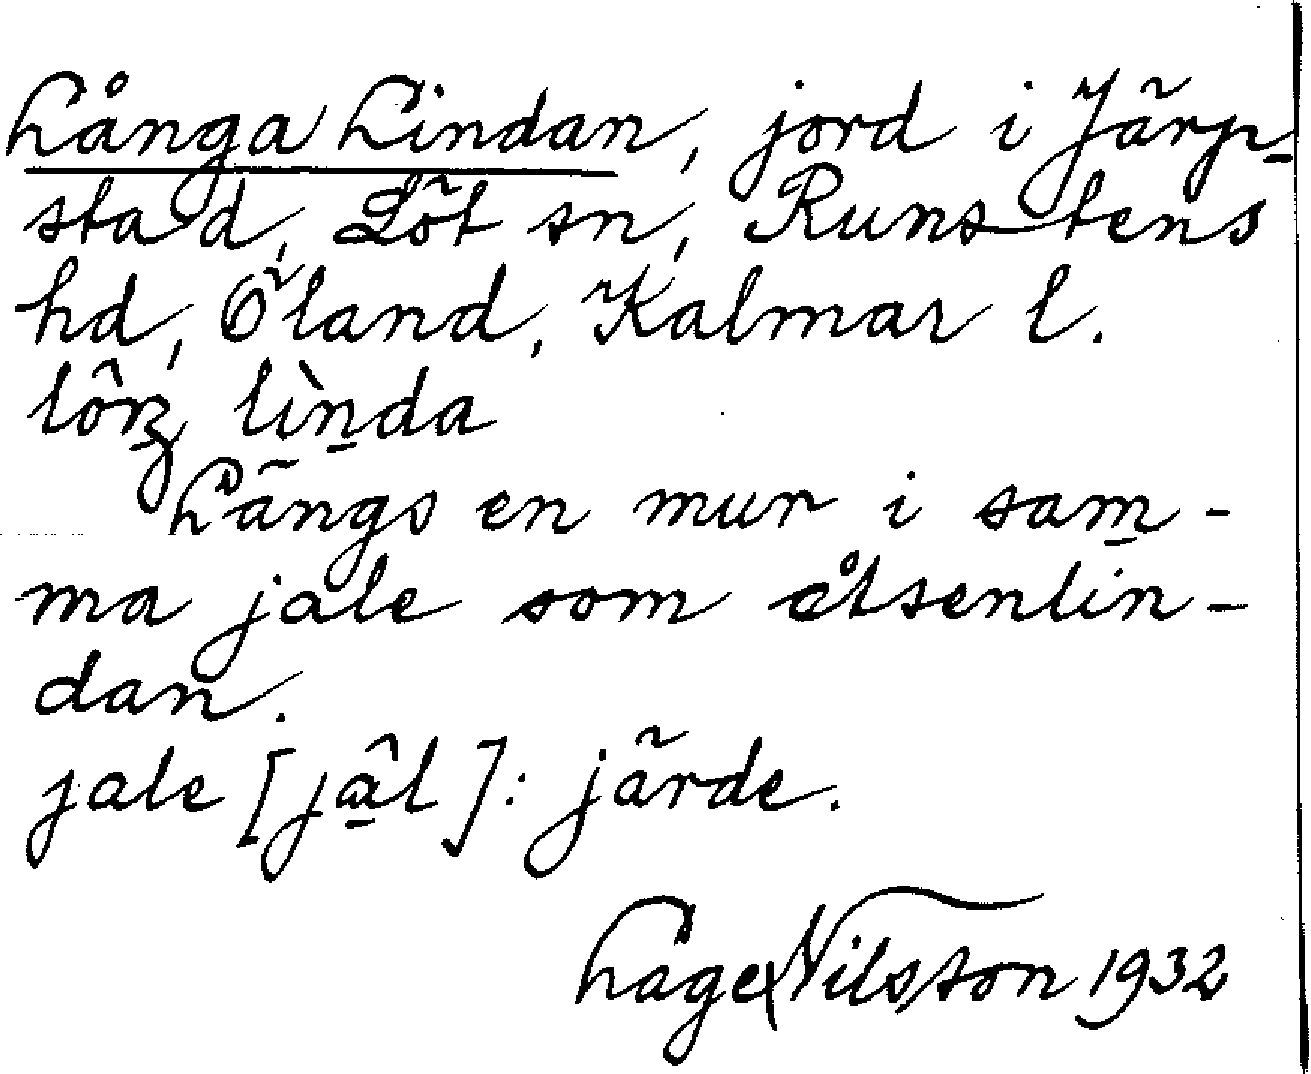 Långa Lindan, jord i Järp-
stad, Löt sn, Runstens
hd, Öland, Kalmar l.
lôŋ lìnda
Längs en mur i sam-
ma jale som åtsenlin-
dan.
jale [jâl]: järde.
Lage Nilsson 1932